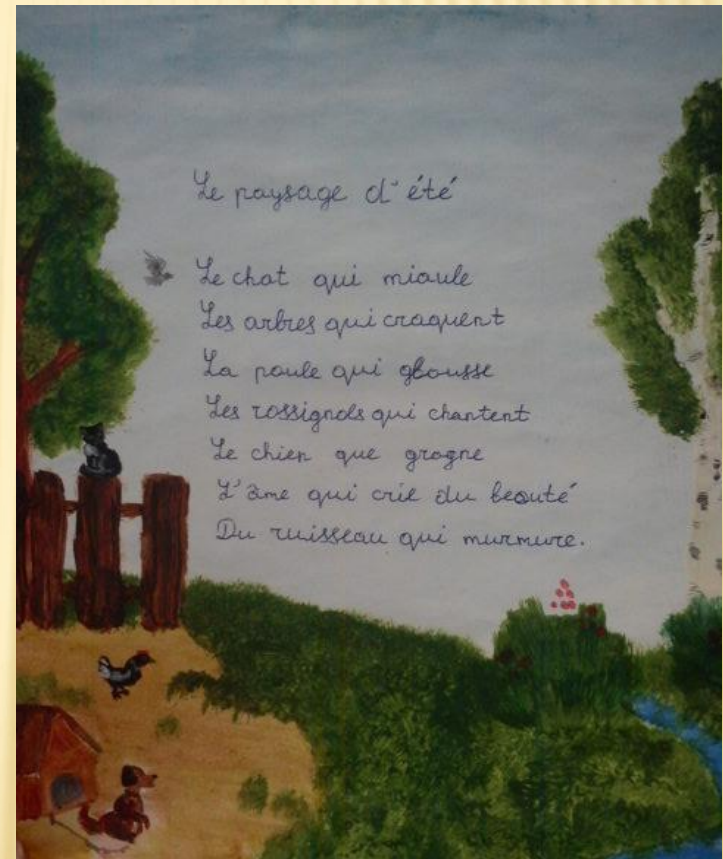 Le paysage d'été
Le chat qui miaule
Les arbres qui craquent
La poule qui glousse
Les rossignols qui chantent
Le chien que grogne
L'âme qui crie du beauté
Du ruisseau qui murmure.